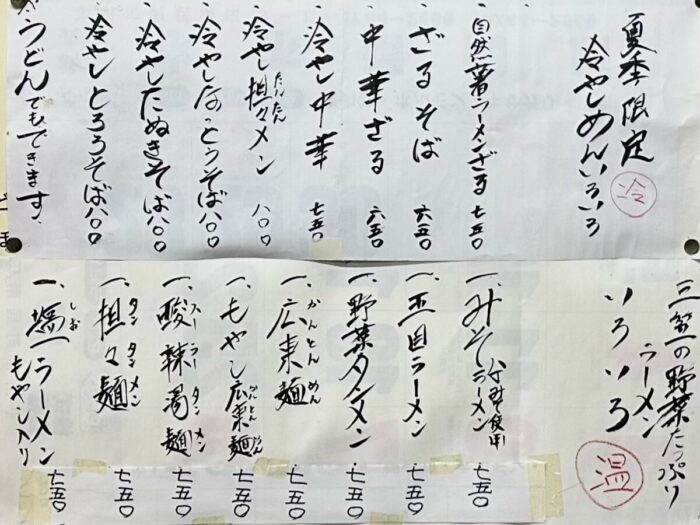 夏季限定
冷やしめんいろいろ
冷
・自然薯ラーメンざる 七五〇
・ざるそば 六五〇
・中華ざる 六五〇
・冷やし中華 七五〇
たんたん
・冷やし担々メン 八〇〇
・冷やしなっとうそば 八〇〇
・冷やしたぬきそば 八〇〇
・冷やしとろろそば 八〇〇
うどんでもできます。
野菜たっぷり
ラーメン
いろいろ
温
一、みそラーメン 七五〇
みそ使用
一、五目ラーメン 七五〇
一、野菜タンメン 七五〇
かんとんめん
一、広東麺 七五〇
かんとんめん
一、もやし広東麺 七五〇
スーラータンメン
一、酸辣湯麺 七五〇
タンタンメン
一、担々麺 七五〇
しお
一、塩ラーメン 七五〇
もやし入り